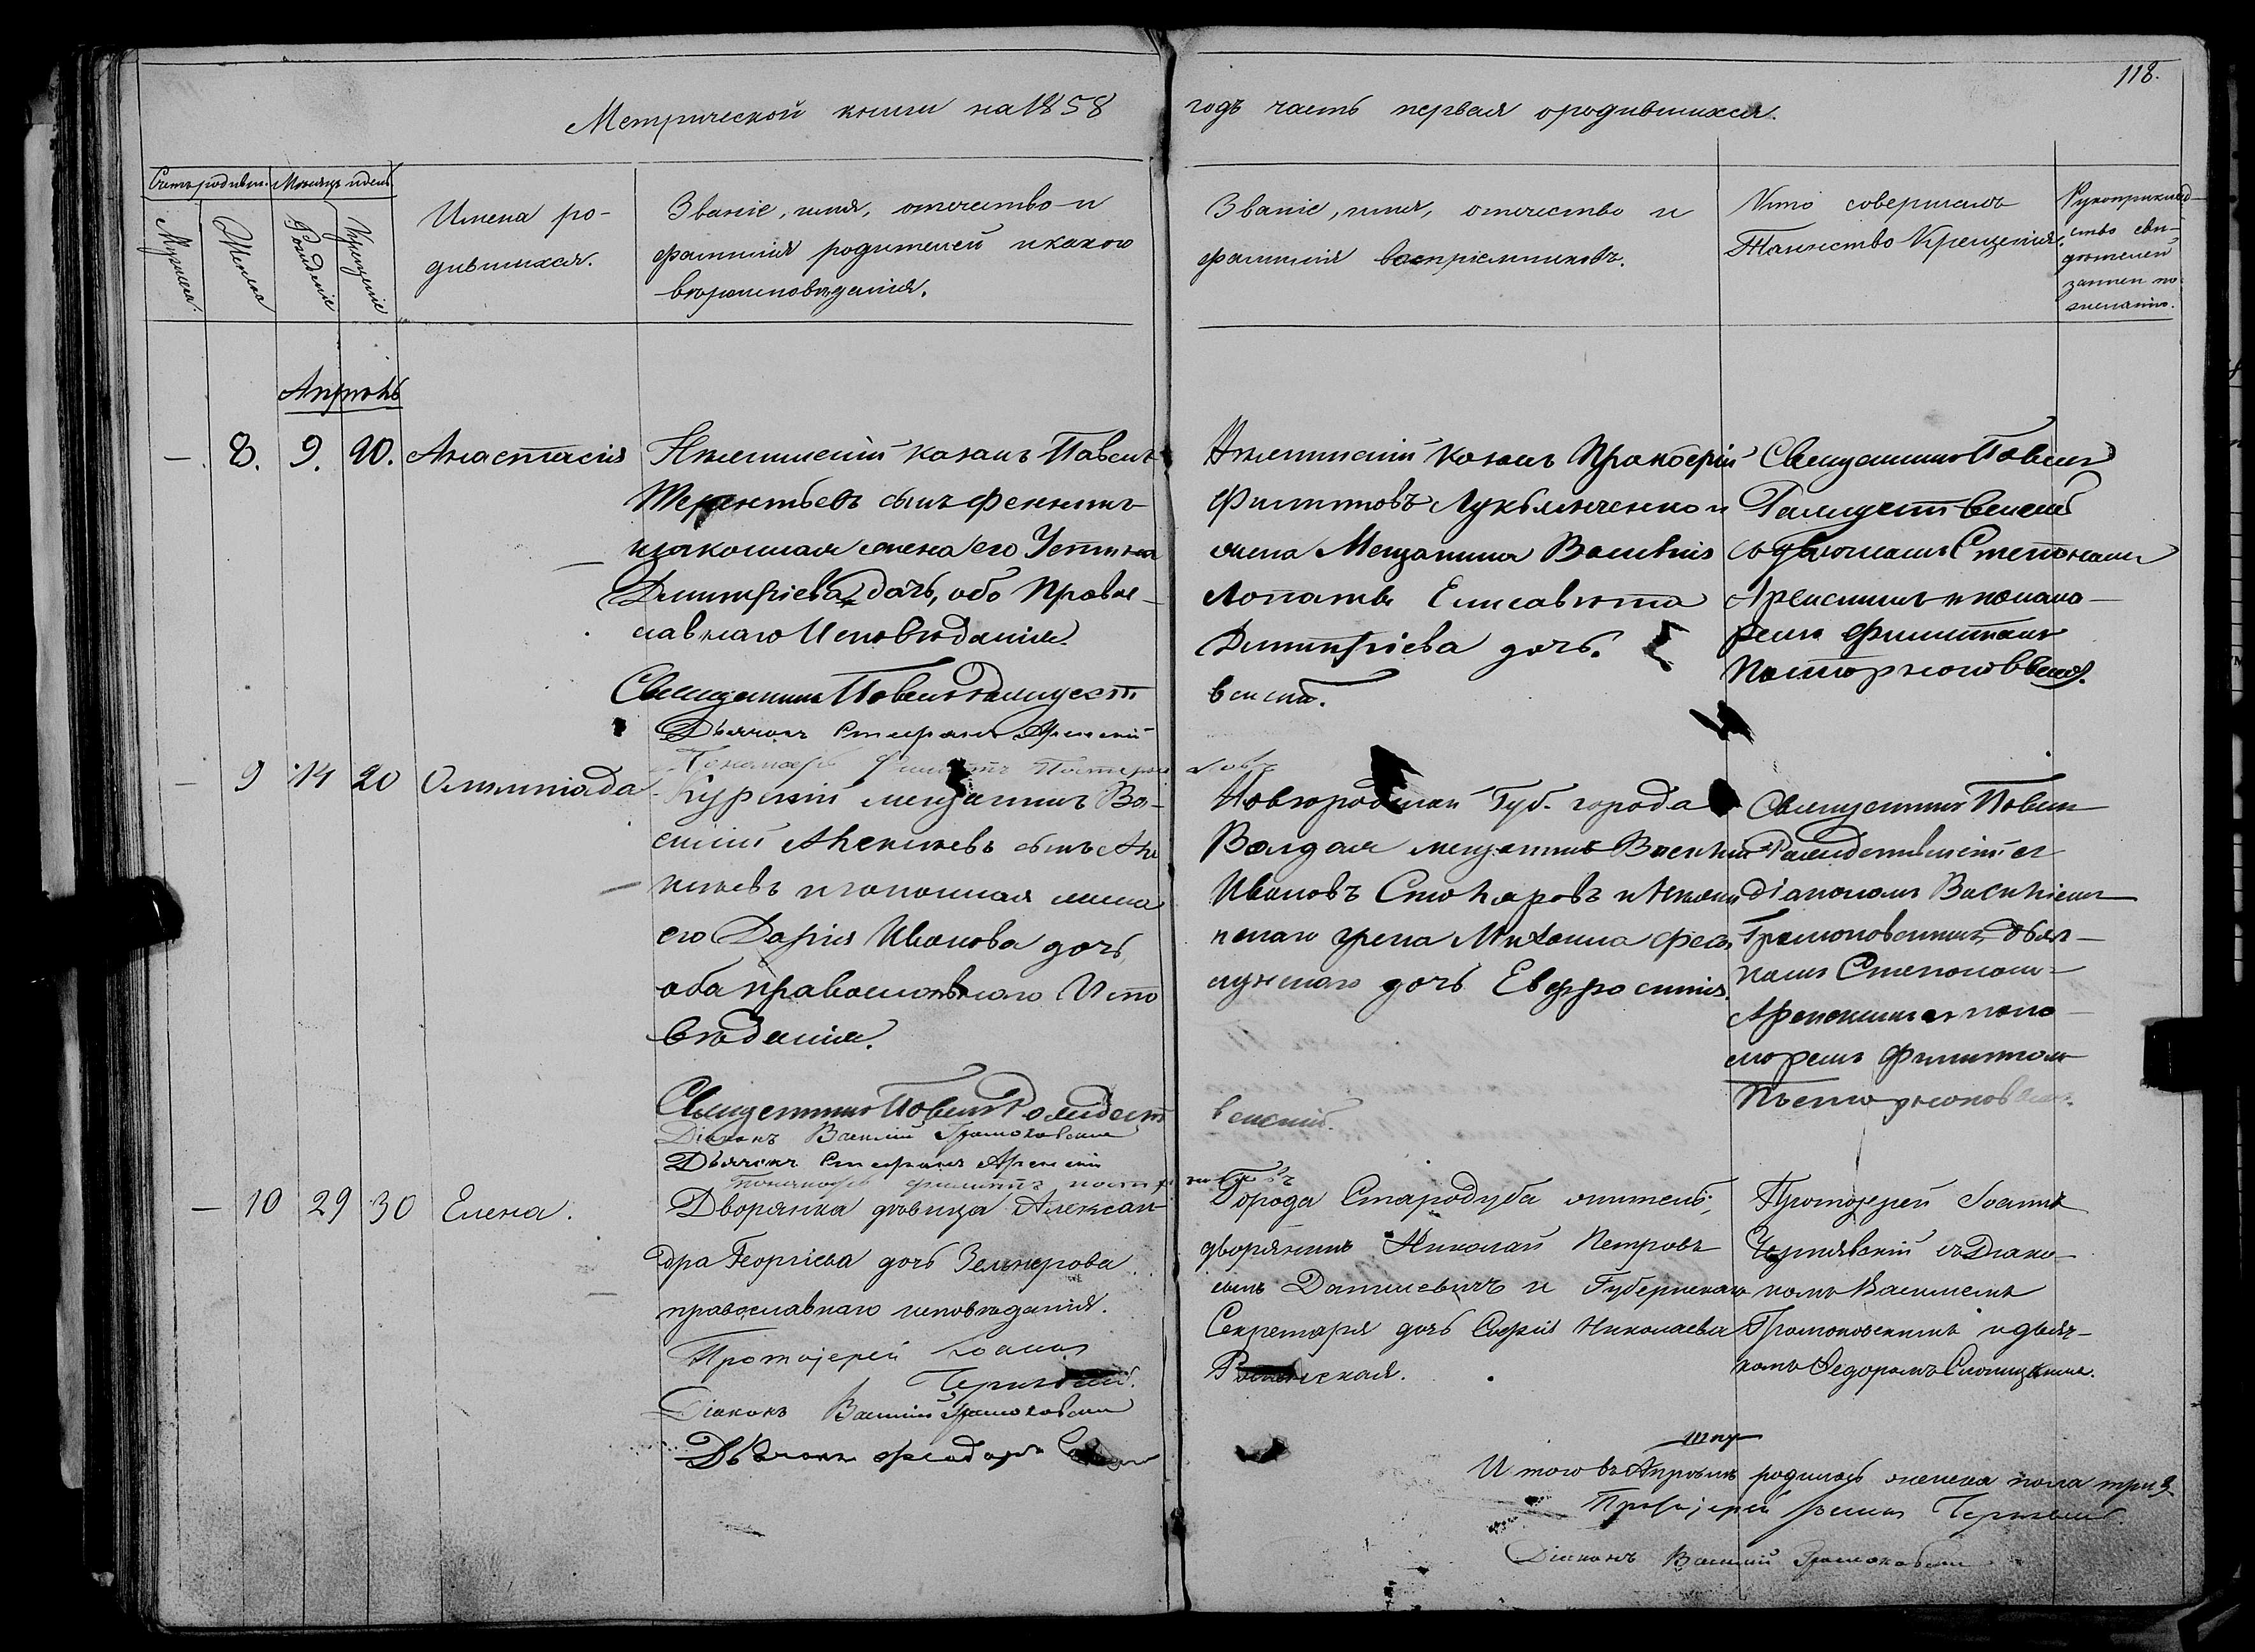 118.
Метрической книги на 1858 годъ часть первая о родившихся.
Счетъ родивш.
Мѣсяцъ и день
Мужеска.
Женска
Рожденіе
Крещеніе
Имена ро-
дившихся.
Званіе, имя, отчество и
фамилія родителей и какого
вѣроисповѣданія.
Званіе, имя, отчество и
фамилія воспріемниковъ.
Кто совершалъ
Таинство Крещенія.
Рукоприклад-
ство сви-
дѣтелей
записи по
желанію.
Апрѣль
— 8. 9. 20. Анастасія
козакъ Павелъ
Терентьевъ сынъ
и законная жена его Устинья
Димитріева дочь, обо Правос-
лавнаго Исповѣданія.
Священникъ Павелъ
Дьячокъ Стефанъ Аренскій
Пономарь Филиппъ
козакъ Прокофій
Филиповъ Лукьянченко и
жена Мещанина Василія
Лопаты Елисавета
Димитріева дочь.
Священникъ Павелъ
съ дьячкомъ Стефаномъ
Аренскимъ и понома-
ремъ Филиппомъ
— 9 14 20 Олимпіада
Курскій мещанинъ Ва-
силій сынъ
и законная жена
его Дарія Иванова дочь
оба православнаго Испо
вѣданія.
Священникъ Павелъ
Діаконъ Василій Громоковскій
Дьячокъ Стефанъ Аренскій
Пономарь Филиппъ
Новгородской Губ. города
Валдая мещанинъ Василій
Ивановъ Столяровъ и
грека Михаила
дочь Евфросинія.
Священникъ Павелъ
съ
діакономъ Василіемъ
Громоковскимъ, дьяч-
комъ Стефаномъ
Аренскимъ и поно-
маремъ Филиппомъ
— 10 29 30 Елена.
Дворянка дѣвица Алексан-
дра Георгіева дочь Зельнерова
православнаго исповѣданія.
Протоіерей Іоаннъ
Чернявскій.
Діаконъ Василій Громоковскій
Дьячокъ Феодоръ
Города Стародуба житель,
дворянинъ Николай Петровъ
сынъ Данилевичъ и Губернскаго
Секретаря дочь Софія Николаева
Протоіерей Іоаннъ
Чернявскій съ Діако-
номъ Василіемъ
Громоковскимъ и дьяч-
комъ Федоромъ
Итого въ Апрѣлѣ родилось женска пола три 3
Протоіерей Іоаннъ Чернявскій
Діаконъ Василій Громоковскій